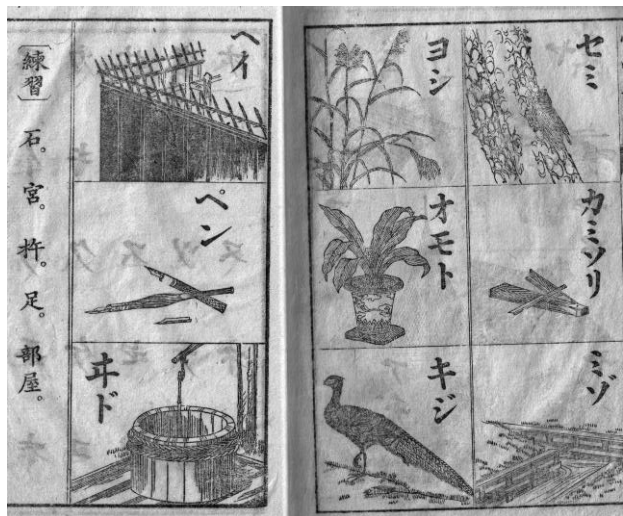 セミ
カミソリ
ミゾ
ヨシ
オモト
キジ
ヘイ
ペン
ヰド
〔練習〕 石。宮。杵。足。部屋。